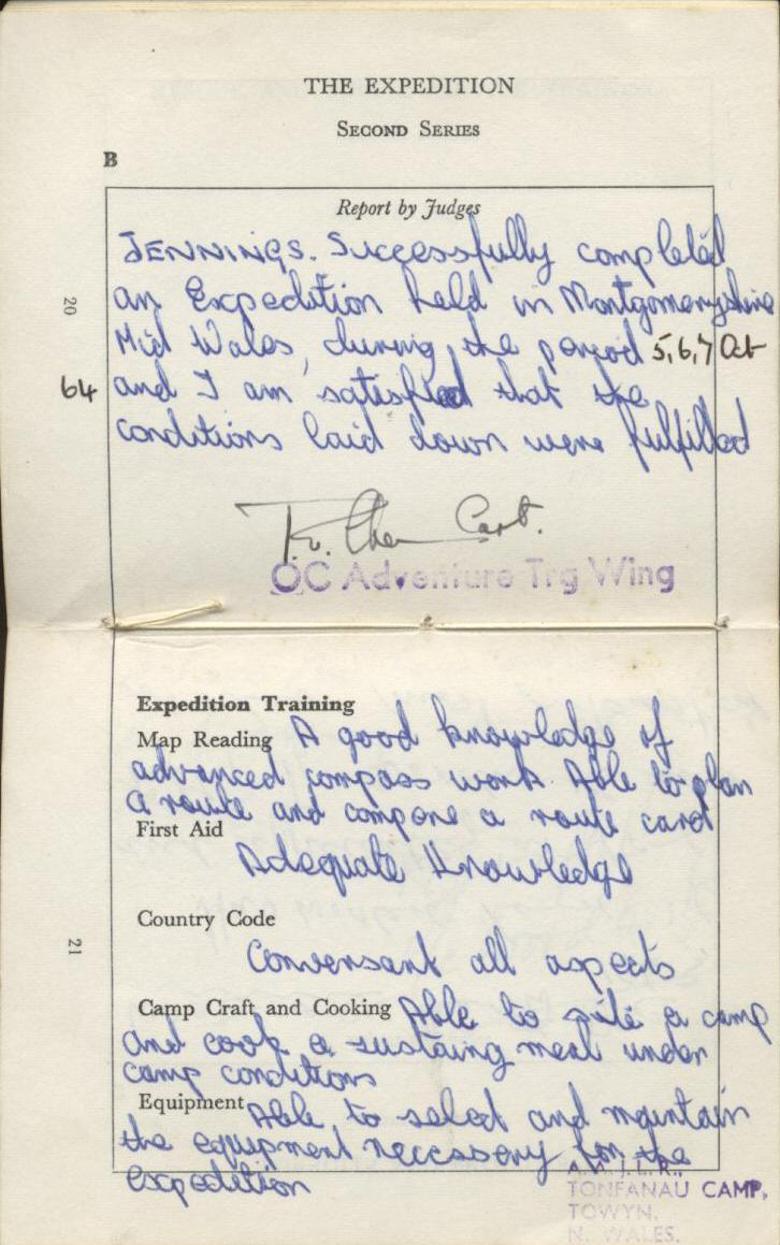 THE EXPEDITION
SECOND SERIES
B
Report by Judges
JENNINGS. Successfully completed
an Expedition held in Montgomeryshire
Mid Wales, during the period 5,6,7 Oct
64 and I am satisfied that the
conditions laid down were fulfilled
Capt.
OC Adventure Trg Wing
20
Expedition Training
Map Reading A good knowledge of
advanced compass work. Able to plan
a route and compone a route card
First Aid
Adequate Knowledge
Country Code
Conversant all aspects
Camp Craft and Cooking Able to site a camp
and cook a sustaing meal under
camp conditions
Equipment Able to select and maintain
the equipment neccessary for the
expedition
21
J.L.R.,
TONFANAU CAMP,
TOWYN,
N. WALES.